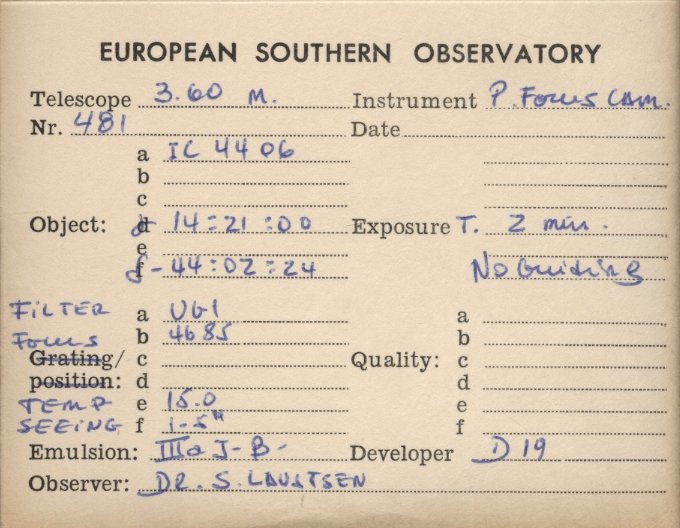 EUROPEAN SOUTHERN OBSERVATORY
Telescope 3.60 M. Instrument P. Focus Cam.
Nr. 481 Date
a IC 4406
b
c
Object: d 14:21:00 Exposure T. 2 min.
e
f -44:02:24 No Guiding
FILTER a UG1 a
Focus b 4685 b
Grating/ c Quality: c
position: d d
TEMP e 15.0 e
SEEING f 1.5" f
Emulsion: IIIa J-B- Developer D 19
Observer: DR. S. LAUSTSEN